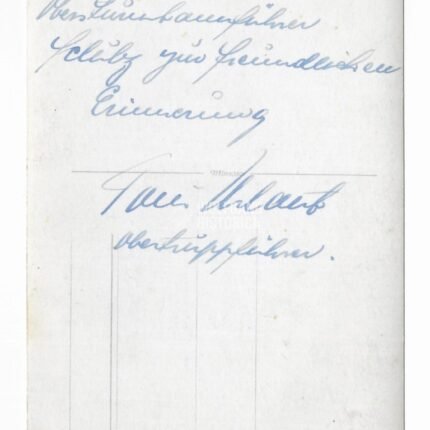 Obersturmbannführer
Schulz zur freundlichen
Erinnerung
Obertruppführer.